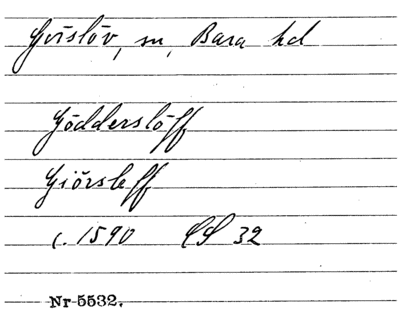 Görslöv, sn, Bara hd
Gödderslöff
Giörsleff
c. 1590 LS 32
Nr 5532.